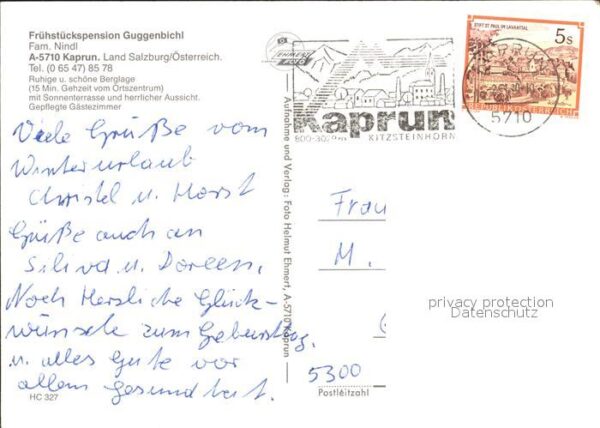 Frühstückspension Guggenbichl
Fam. Nindl
A-5710 Kaprun. Land Salzburg/Österreich.
Tel. (0 65 47) 85 78
Ruhige u. schöne Berglage
(15 Min. Gehzeit vom Ortszentrum)
mit Sonnenterrasse und herrlicher Aussicht.
Gepflegte Gästezimmer
Viele Grüße vom
Winterurlaub
Christel u. Horst
Grüße auch an
Silva u. Doreen.
Noch Herzliche Glück-
wünsche zum Geburtstag.
u. alles Gute vor
allem gesundheit.
HC 327
Aufnahme und Verlag: Foto Helmut Ehnert, A-5710 Kaprun
EHNERT
FOTO
Kaprun
KITZSTEINHORN
STIFT ST. PAUL IM LAVANTTAL
5s
REPUBLIK ÖSTERREICH
5710
Frau
M.
5300
Postleitzahl
privacy protection
Datenschutz